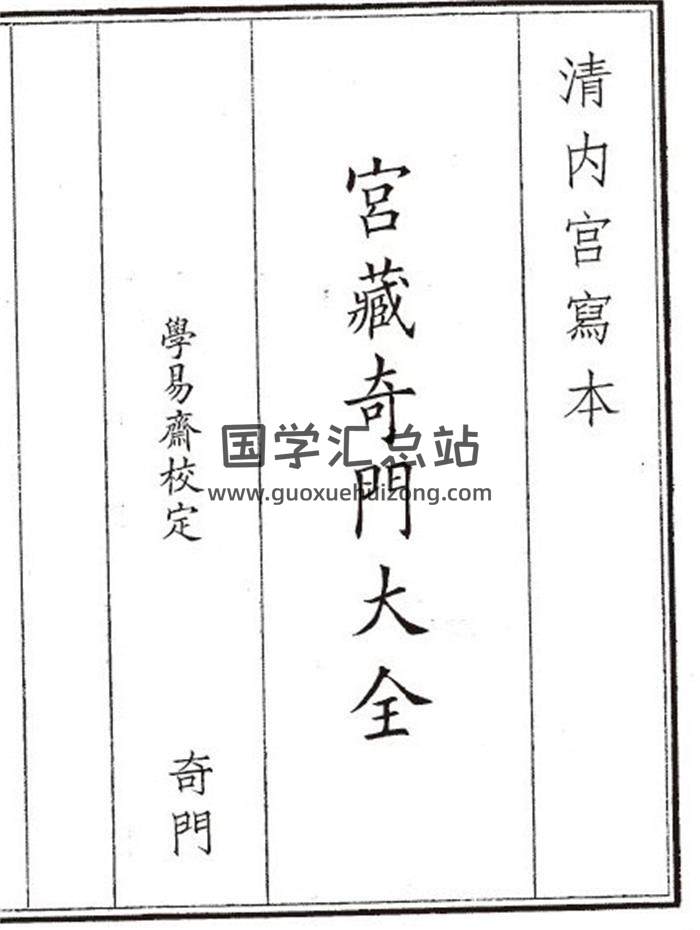 清内宫寫本
宮藏奇門大全
學易齋校定
奇門
国学汇总站
www.guoxuehuizong.com